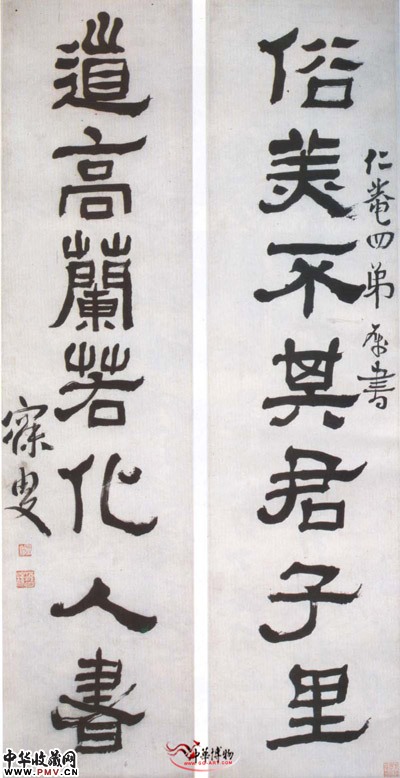 俗美不其君子里
仁菴四弟属書
道高蘭若化人書
寐叟
中华收藏网
WWW.PMV.CN
中华博物
WWW.GG-ART.COM